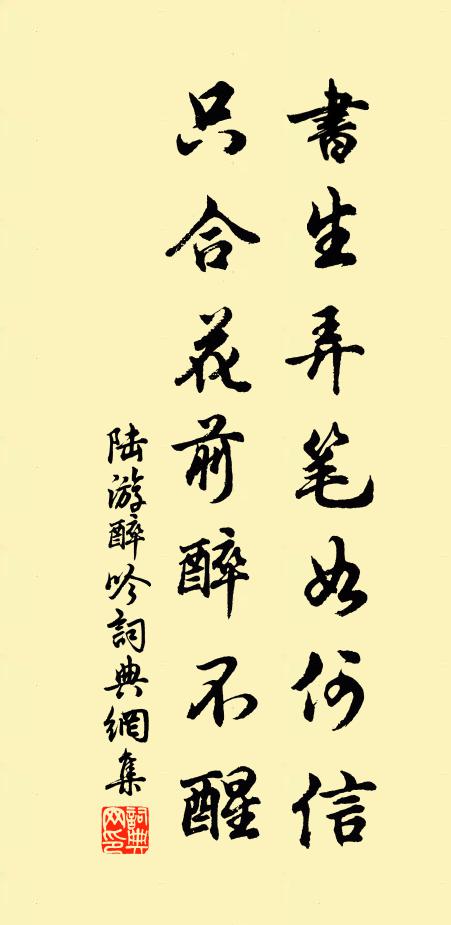 書生弄笔如何信
只合花前醉不醒
陆游醉吟詞典網集
詞典
网印